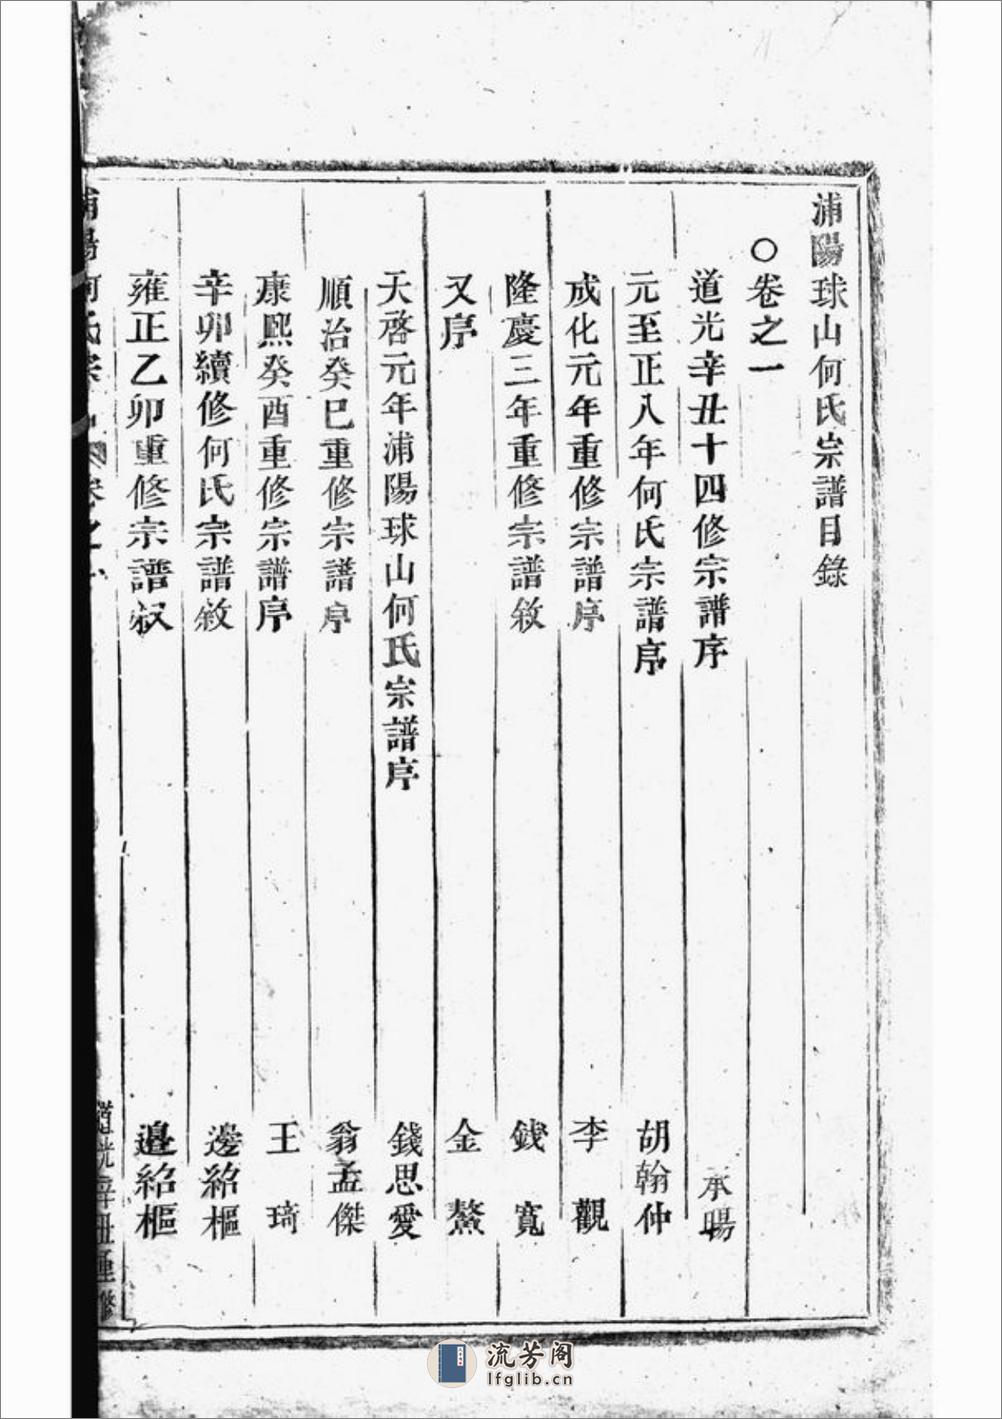 浦陽球山何氏宗譜目錄
○卷之一
道光辛丑十四修宗譜序 承暘
元至正八年何氏宗譜序 胡翰仲
成化元年重修宗譜序 李觀
隆慶三年重修宗譜敘 錢寬
又序 金鰲
天啓元年浦陽球山何氏宗譜序 錢思愛
順治癸巳重修宗譜序 翁孟傑
康熙癸酉重修宗譜序 王琦
辛卯續修何氏宗譜敘 邊紹樞
雍正乙卯重修宗譜叙 邊紹樞
浦陽何氏宗 卷之一 道光辛丑重修
流芳阁
lfglib.cn